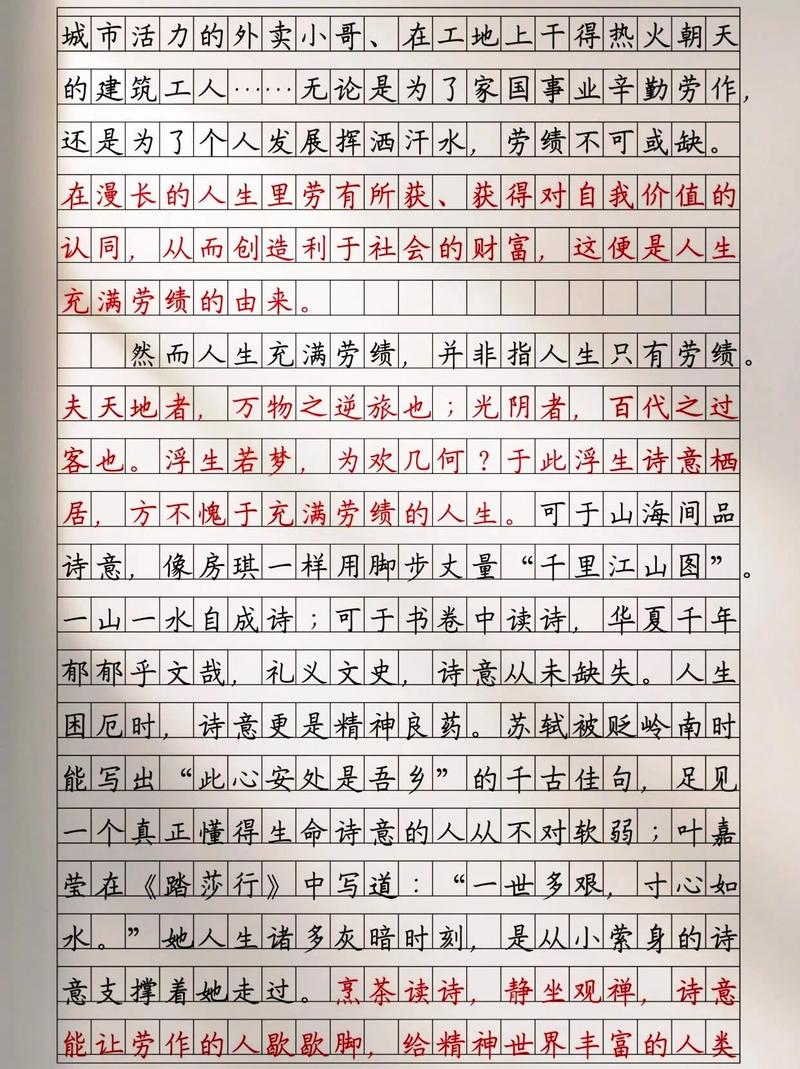 城市活力的外卖小哥、在工地上干得热火朝天
的建筑工人……无论是为了家国事业辛勤劳作，
还是为了个人发展挥洒汗水，劳绩不可或缺。
在漫长的人生里劳有所获、获得对自我价值的
认同，从而创造利于社会的财富，这便是人生
充满劳绩的由来。
然而人生充满劳绩，并非指人生只有劳绩。
夫天地者，万物之逆旅也；光阴者，百代之过
客也。浮生若梦，为欢几何？于此浮生诗意栖
居，方不愧于充满劳绩的人生。可于山海间品
诗意，像房琪一样用脚步丈量“千里江山图”。
一山一水自成诗；可于书卷中读诗，华夏千年
郁郁乎文哉，礼义文史，诗意从未缺失。人生
困厄时，诗意更是精神良药。苏轼被贬岭南时
能写出“此心安处是吾乡”的千古佳句，足见
一个真正懂得生命诗意的人从不对软弱；叶嘉
莹在《踏莎行》中写道：“一世多艰，寸心如
水。”她人生诸多灰暗时刻，是从小萦身的诗
意支撑着她走过。烹茶读诗，静坐观禅，诗意
能让劳作的人歇歇脚，给精神世界丰富的人类